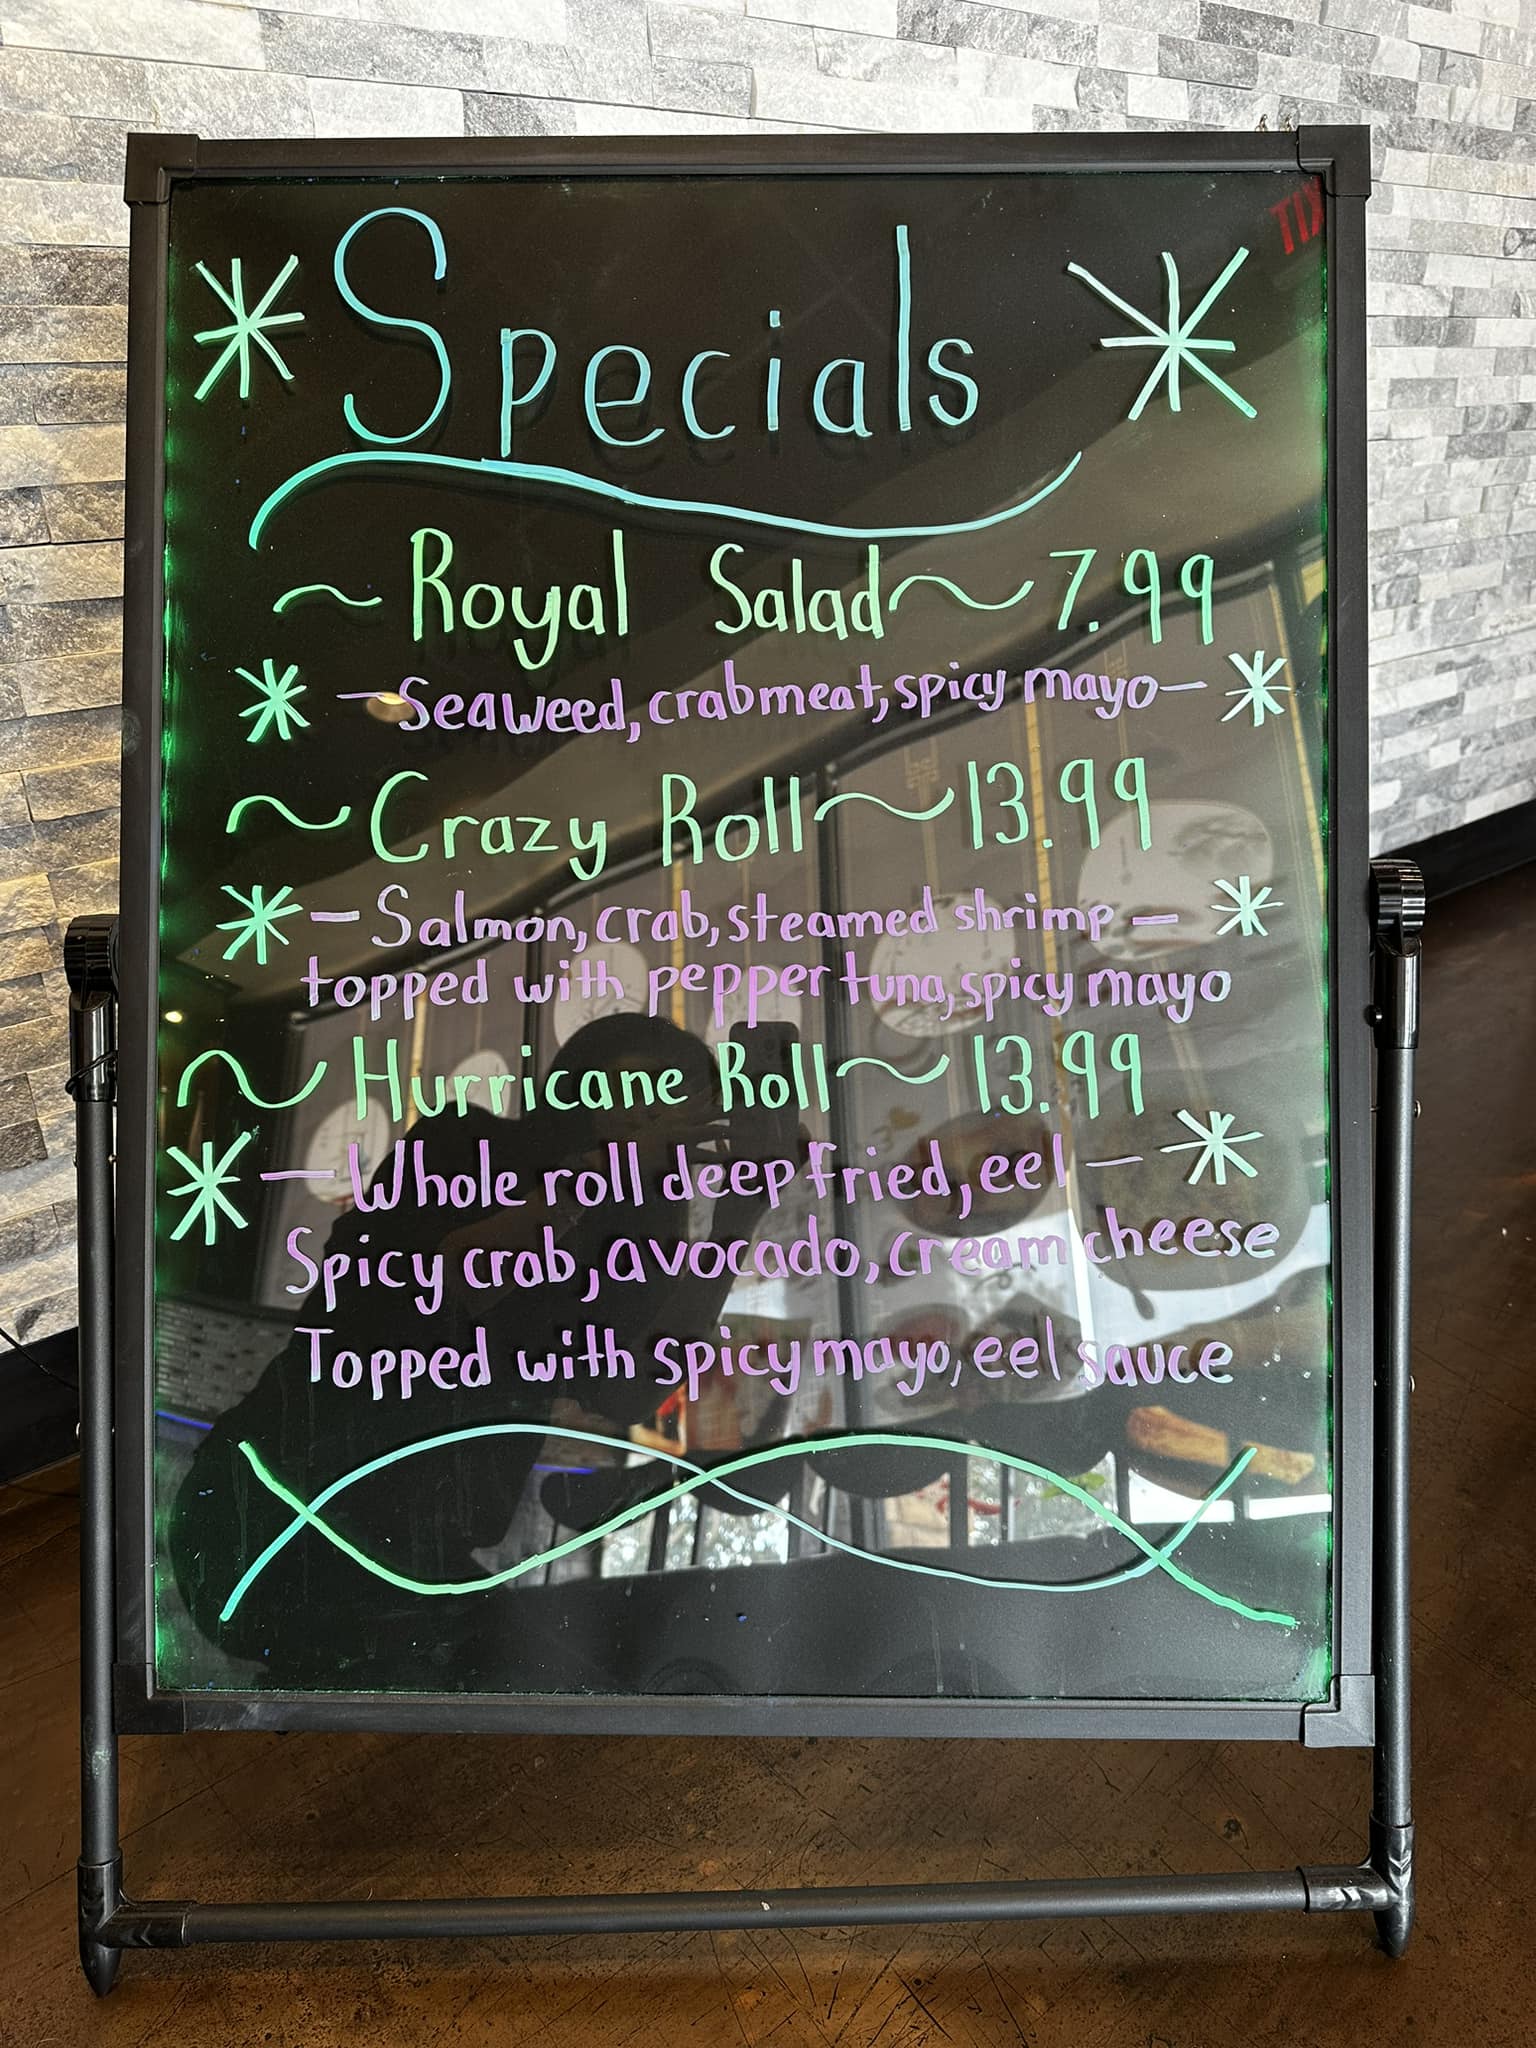 Specials
~Royal Salad~7.99
-Seaweed, crabmeat, spicy mayo-
~Crazy Roll~13.99
-Salmon, crab, steamed shrimp-
topped with pepper tuna, spicy mayo
~Hurricane Roll~13.99
-Whole roll deep fried, eel-
Spicy crab, avocado, cream cheese
Topped with spicy mayo, eel sauce